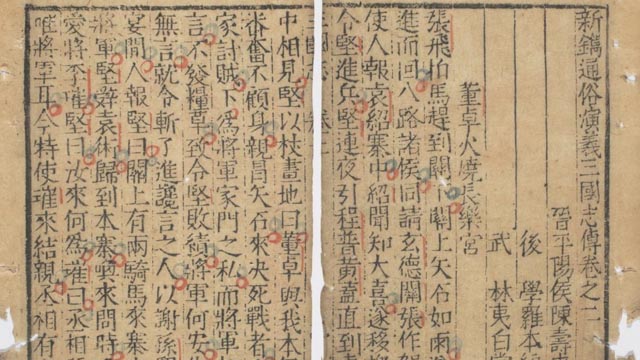 新鐫通俗演義三國志傳卷之二
晉平陽侯陳壽
後 學羅本
武 林夷白堂
董卓火燒長樂宮
張飛拍馬趕到關下關上矢石如雨
進而回八路諸侯同請玄德關張作賀
使人報袁紹寨中紹聞知大喜遂移檄
令堅進兵堅連夜引程普黃蓋直到
中相見堅以杖畫地曰董卓與我本
番奮不顧身親冒矢石來決死戰者
家討賊下為將軍家門之私而將軍
言不發糧草致令堅敗績將軍何安
無言就令斬了進讒言之人以謝孫
宴間人報堅曰關上有兩騎馬來寨
將軍堅辭袁術歸到本寨喚來問時
愛將李傕堅曰汝來何為傕曰丞相
唯將軍耳今特使傕來結親丞相有